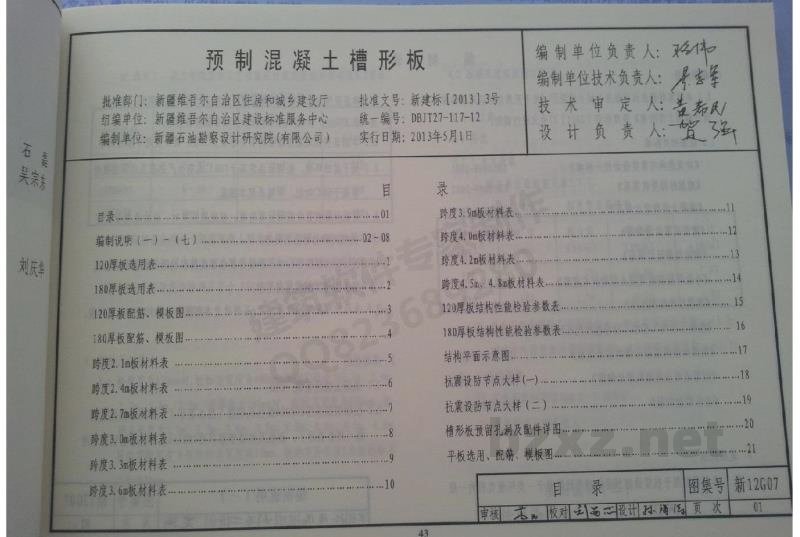 预制混凝土槽形板
批准部门：新疆维吾尔自治区住房和城乡建设厅
批准文号：新建标［2013］3号
组编单位：新疆维吾尔自治区建设标准服务中心
统一编号：DBJT27-117-12
编制单位：新疆石油勘察设计研究院(有限公司)
实行日期：2013年5月1日
编制单位负责人：
编制单位技术负责人：
技术审定人：
设计负责人：
目录
目录 01
编制说明（一）-（七） 02~08
120厚板选用表 1
180厚板选用表 2
120厚板配筋、模板图 3
180厚板配筋、模板图 4
跨度2.1m板材料表 5
跨度2.4m板材料表 6
跨度2.7m板材料表 7
跨度3.0m板材料表 8
跨度3.3m板材料表 9
跨度3.6m板材料表 10
跨度3.9m板材料表 11
跨度4.0m板材料表 12
跨度4.2m板材料表 13
跨度4.5m、4.8m板材料表 14
120厚板结构性能检验参数表 15
180厚板结构性能检验参数表 16
结构平面示意图 17
抗震设防节点大样(一) 18
抗震设防节点大样（二） 19
槽形板预留孔洞及配件详图 20
平板选用、配筋、模板图 21
目录
图集号
新12G07
审核
校对
设计
页次
01
43
石磊
吴宗东
刘庆华